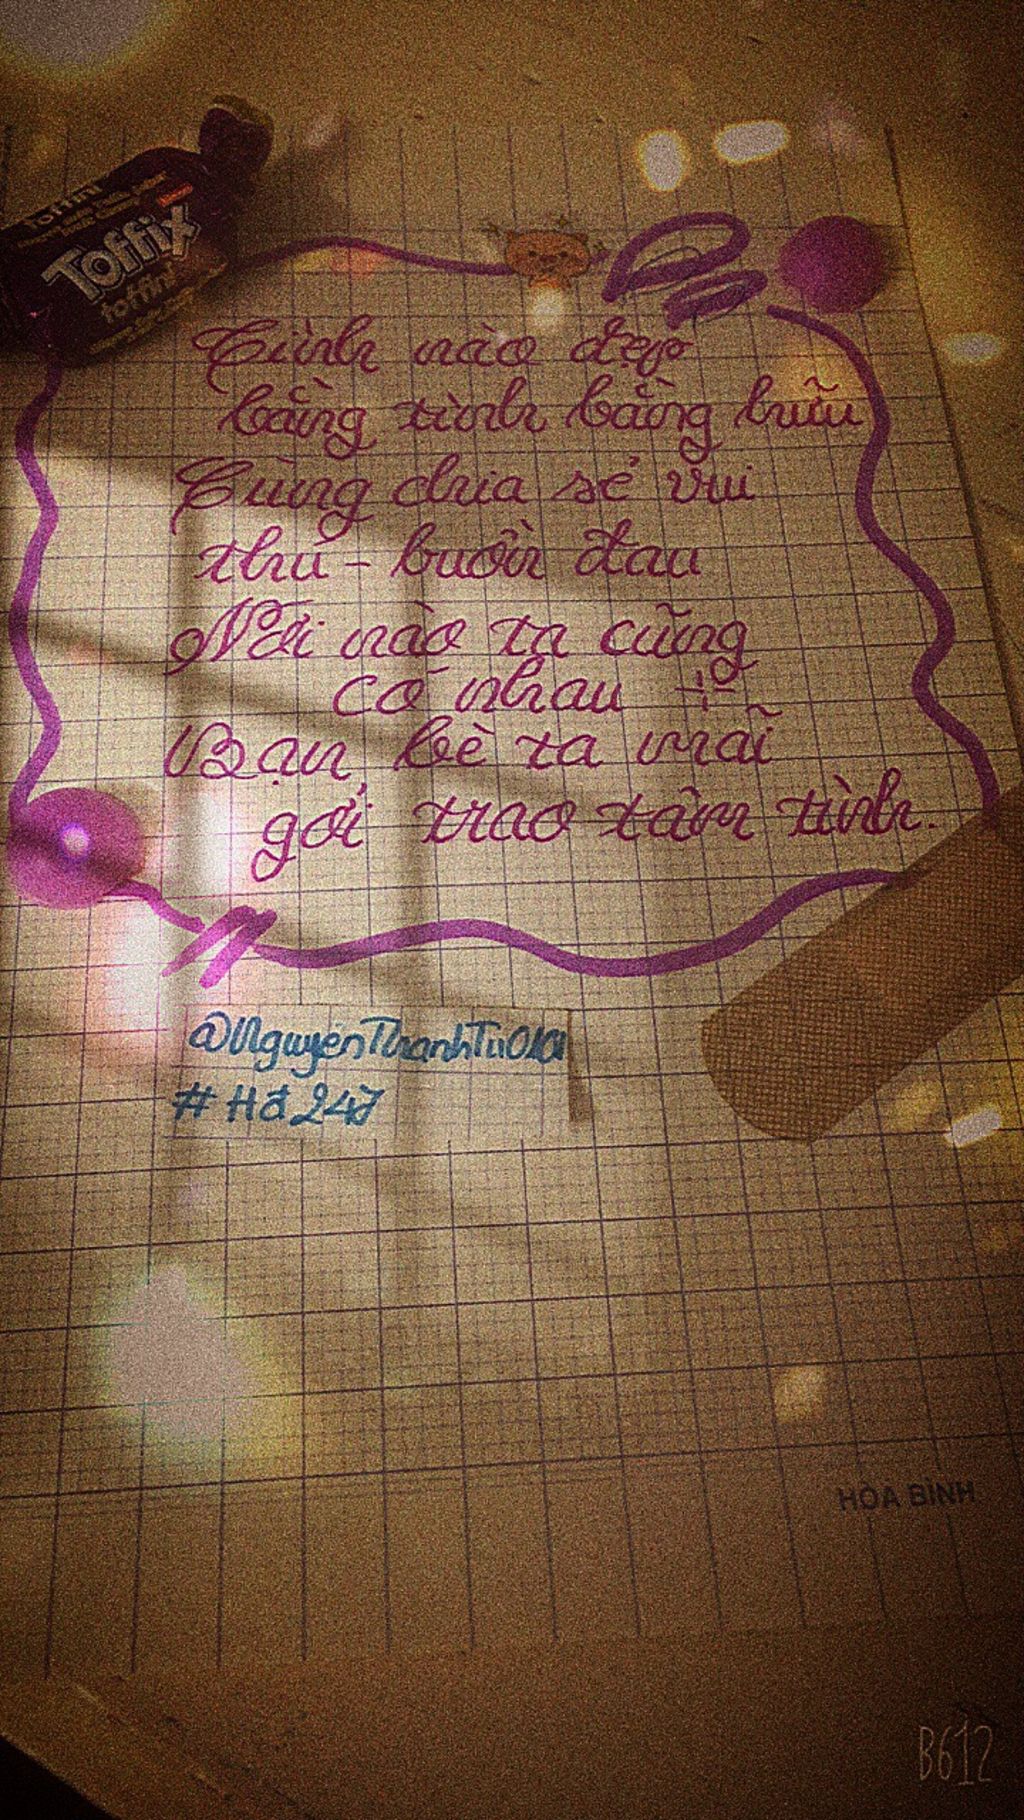 Toffix
toffini
Tình nào đẹp
bằng tình bằng hữu
Cùng chia sẻ vui
thú - buồn đau
Nơi nào ta cũng
có nhau
Bạn bè ta mãi
gởi trao tâm tình.
#Hđ247
HÒA BÌNH
B612